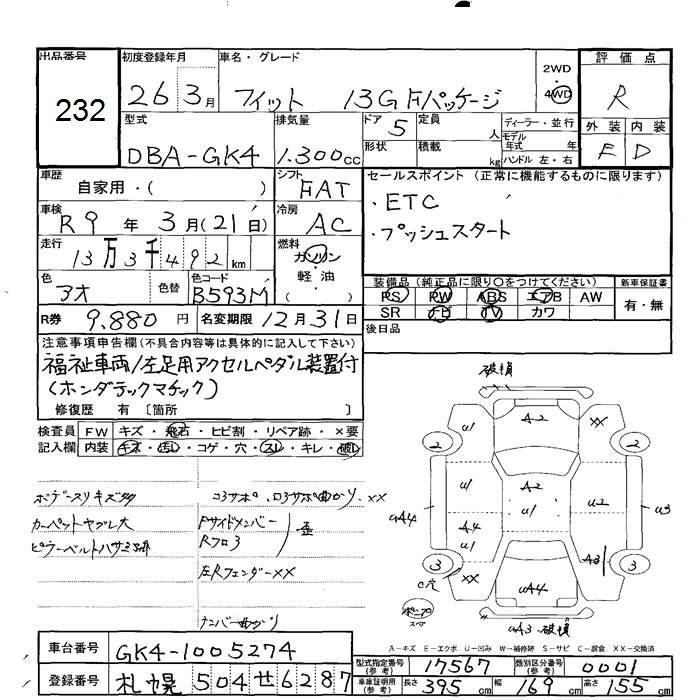 出品番号
232
初度登録年月
26 3月
車名・グレード
フィット 13G Fパッケージ
2WD
4WD
評価点
R
外装 内装
E D
型式
DBA-GK4
排気量
1.300cc
ドア 5
形状
定員 人
積載 kg
ディーラー・並行
モデル年式 年
ハンドル 左・右
車歴
自家用・( )
シフト
FAT
車検
R9 年 3月(21日)
冷房
AC
走行
13万3千492km
燃料
ガソリン
軽・油
( )
色
アオ
色替
色コード
B593M
セールスポイント (正常に機能するものに限ります)
・ETC
・プッシュスタート
装備品 (純正品に限り○をつけてください)
PS PW ABS エアB AW
SR ナビ TV カワ
新車保証書
有・無
R券 9.880円 名変期限 12月31日
後日品
注意事項申告欄(不具合内容等は具体的に記入して下さい)
福祉車両/左足用アクセルペダル装置付
(ホンダテックマチック)
修復歴 有 〔箇所 〕
検査員記入欄
FW キズ・飛石・ヒビ割・リペア跡・×要
内装 キズ・汚レ・コゲ・穴・スレ・キレ・破レ
カーペットヤブレ大
Fサイドメンバー
歪
左Rフェンダー××
ナンバー曲がり
破損
A2
U1
××
2
2
U1
A2
U1
U2
U3
A4
A4
U1
A3
3
3
C穴
××
UA4
UA3 破損
A－キズ E－エクボ U－凹み W－補修跡 S－サビ C－腐食 XX－交換済
車台番号 GK4-1005274
登録番号 札幌 504 せ 6287
型式指定番号(参考) 17567
類別区分番号(参考) 0001
車庫証明用(参考) 長さ 395cm 幅 169cm 高さ 155cm